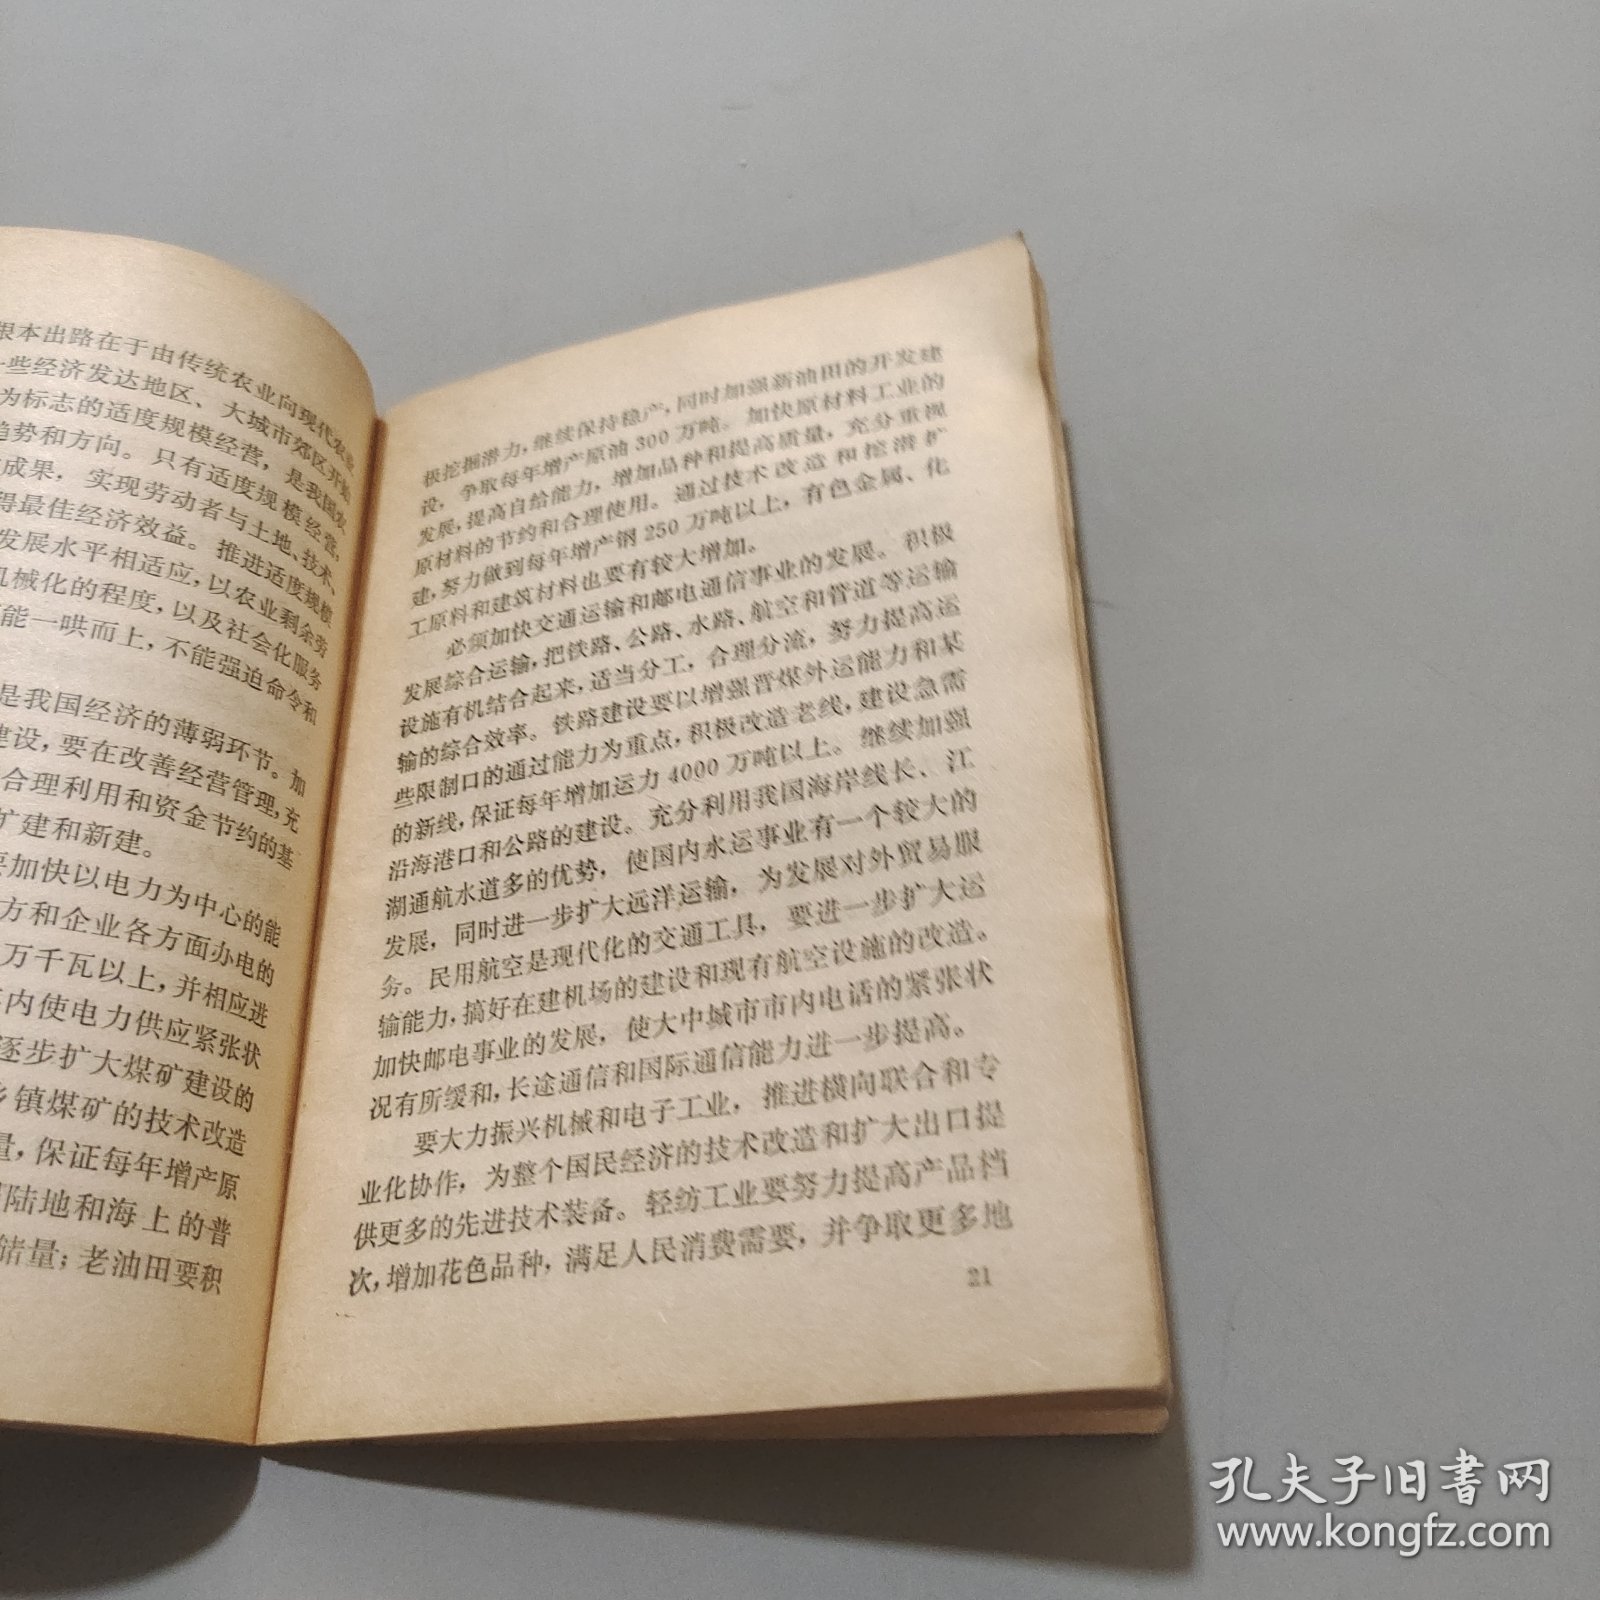 根本出路在于由传统农业向现代农业
一些经济发达地区、大城市郊区开始
为标志的适度规模经营，是我国农
趋势和方向。只有适度规模经营，
成果，实现劳动者与土地、技术、
得最佳经济效益。推进适度规模
发展水平相适应，以农业剩余劳
机械化的程度，以及社会化服务
能一哄而上，不能强迫命令和
是我国经济的薄弱环节。加
建设，要在改善经营管理，充
合理利用和资金节约的基
扩建和新建。
要加快以电力为中心的能
方和企业各方面办电的
万千瓦以上，并相应进
内使电力供应紧张状
逐步扩大煤矿建设的
乡镇煤矿的技术改造
量，保证每年增产原
陆地和海上的普
储量；老油田要积
极挖掘潜力，继续保持稳产，同时加强新油田的开发建
设，争取每年增产原油300万吨。加快原材料工业的
发展，提高自给能力，增加品种和提高质量，充分重视
原材料的节约和合理使用。通过技术改造和挖潜扩
建，努力做到每年增产钢250万吨以上，有色金属、化
工原料和建筑材料也要有较大增加。
必须加快交通运输和邮电通信事业的发展。积极
发展综合运输，把铁路、公路、水路、航空和管道等运输
设施有机结合起来，适当分工，合理分流，努力提高运
输的综合效率。铁路建设要以增强晋煤外运能力和某
些限制口的通过能力为重点，积极改造老线，建设急需
的新线，保证每年增加运力4000万吨以上。继续加强
沿海港口和公路的建设。充分利用我国海岸线长、江
湖通航水道多的优势，使国内水运事业有一个较大的
发展，同时进一步扩大远洋运输，为发展对外贸易服
务。民用航空是现代化的交通工具，要进一步扩大运
输能力，搞好在建机场的建设和现有航空设施的改造。
加快邮电事业的发展，使大中城市市内电话的紧张状
况有所缓和，长途通信和国际通信能力进一步提高。
要大力振兴机械和电子工业，推进横向联合和专
业化协作，为整个国民经济的技术改造和扩大出口提
供更多的先进技术装备。轻纺工业要努力提高产品档
次，增加花色品种，满足人民消费需要，并争取更多地
21
孔夫子旧书网
www.kongfz.com